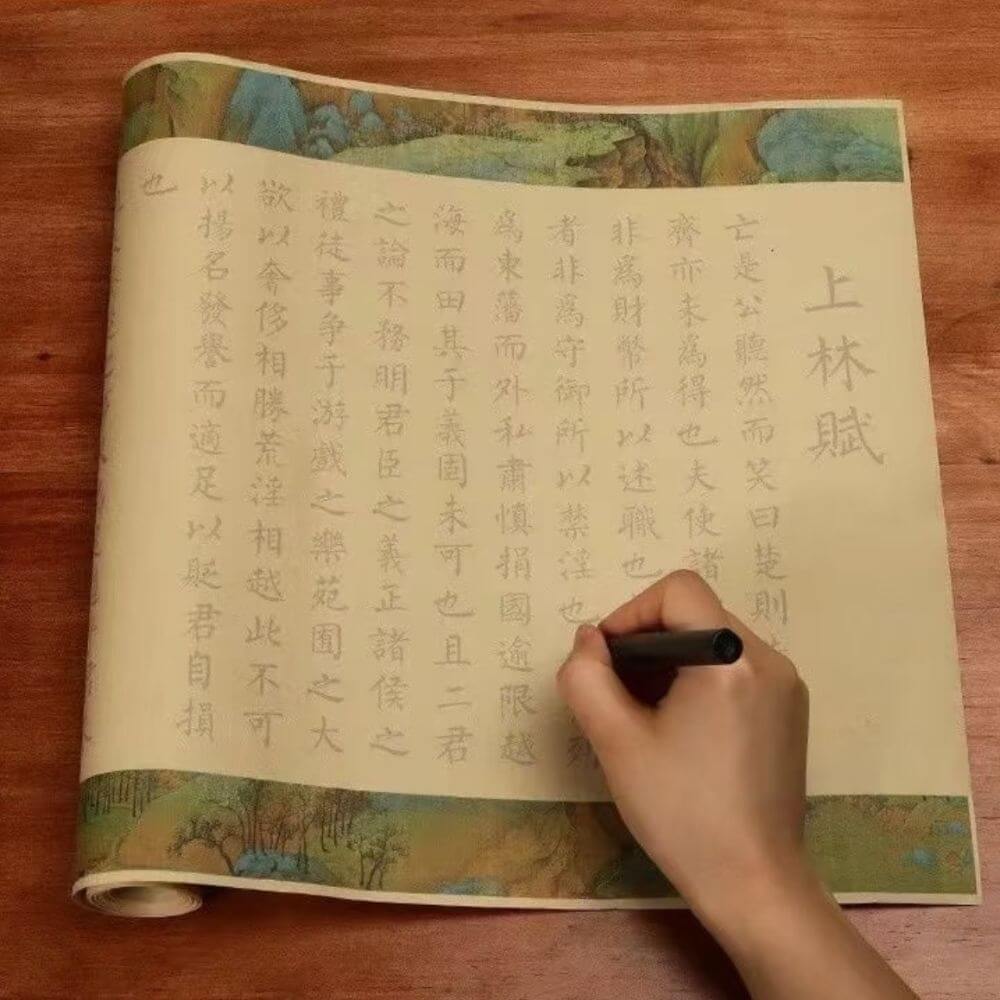 上林賦
亡是公聽然而笑曰楚則
齊亦未為得也夫使諸
非為財幣所以述職也
者非為守御所以禁淫也列
為東藩而外私肅慎捐國逾限越
海而田其于義固未可也且二君
之論不務明君臣之義正諸侯之
禮徒事争于游戲之樂苑囿之大
欲以奢侈相勝荒淫相越此不可
以揚名發譽而適足以貶君自損
也